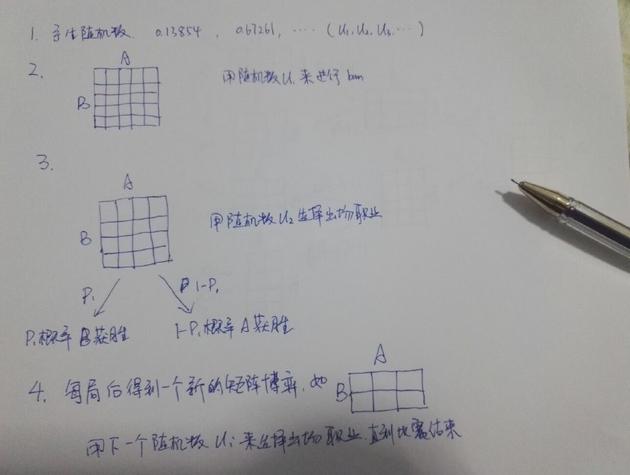 1. 产生随机数. 0.13854 , 0.67261, ···· (U₁, U₂, U₃ ···)
2.
A
B
用随机数U₁来进行ban
3.
A
B
用随机数U₂选择出场职业
P₁
1-P₁
P₁概率B获胜
1-P₁概率A获胜
4. 每局后得到一个新的矩阵博弈. 如
A
B
用下一个随机数Uᵢ来选择出场职业.直到比赛结束